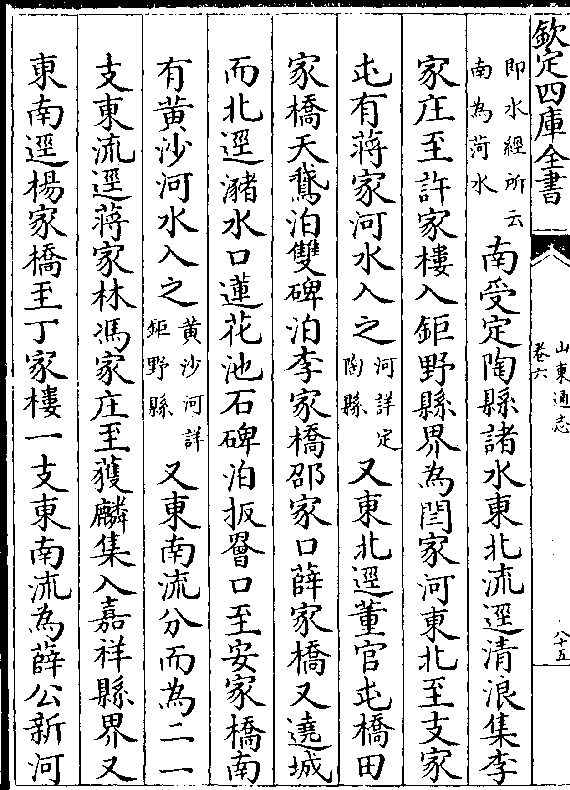 欽定四庫全書
山東通志
卷六
八十五
即水經所云
南為菏水
南受定陶縣諸水東北流逕清浪集李
家庄至許家樓入鉅野縣界為閆家河東北至支家
屯有蔣家河水入之
河詳定
陶縣
又東北逕董官屯橋田
家橋天鵞泊雙碑泊李家橋邵家口薛家橋又遶城
而北逕瀦水口蓮花池石碑泊扳罾口至安家橋南
有黄沙河水入之
黄沙河詳
鉅野縣
又東南流分而為二一
支東流逕蔣家林馮家庄至獲麟集入嘉祥縣界又
東南逕楊家橋至丁家樓一支東南流為薛公新河